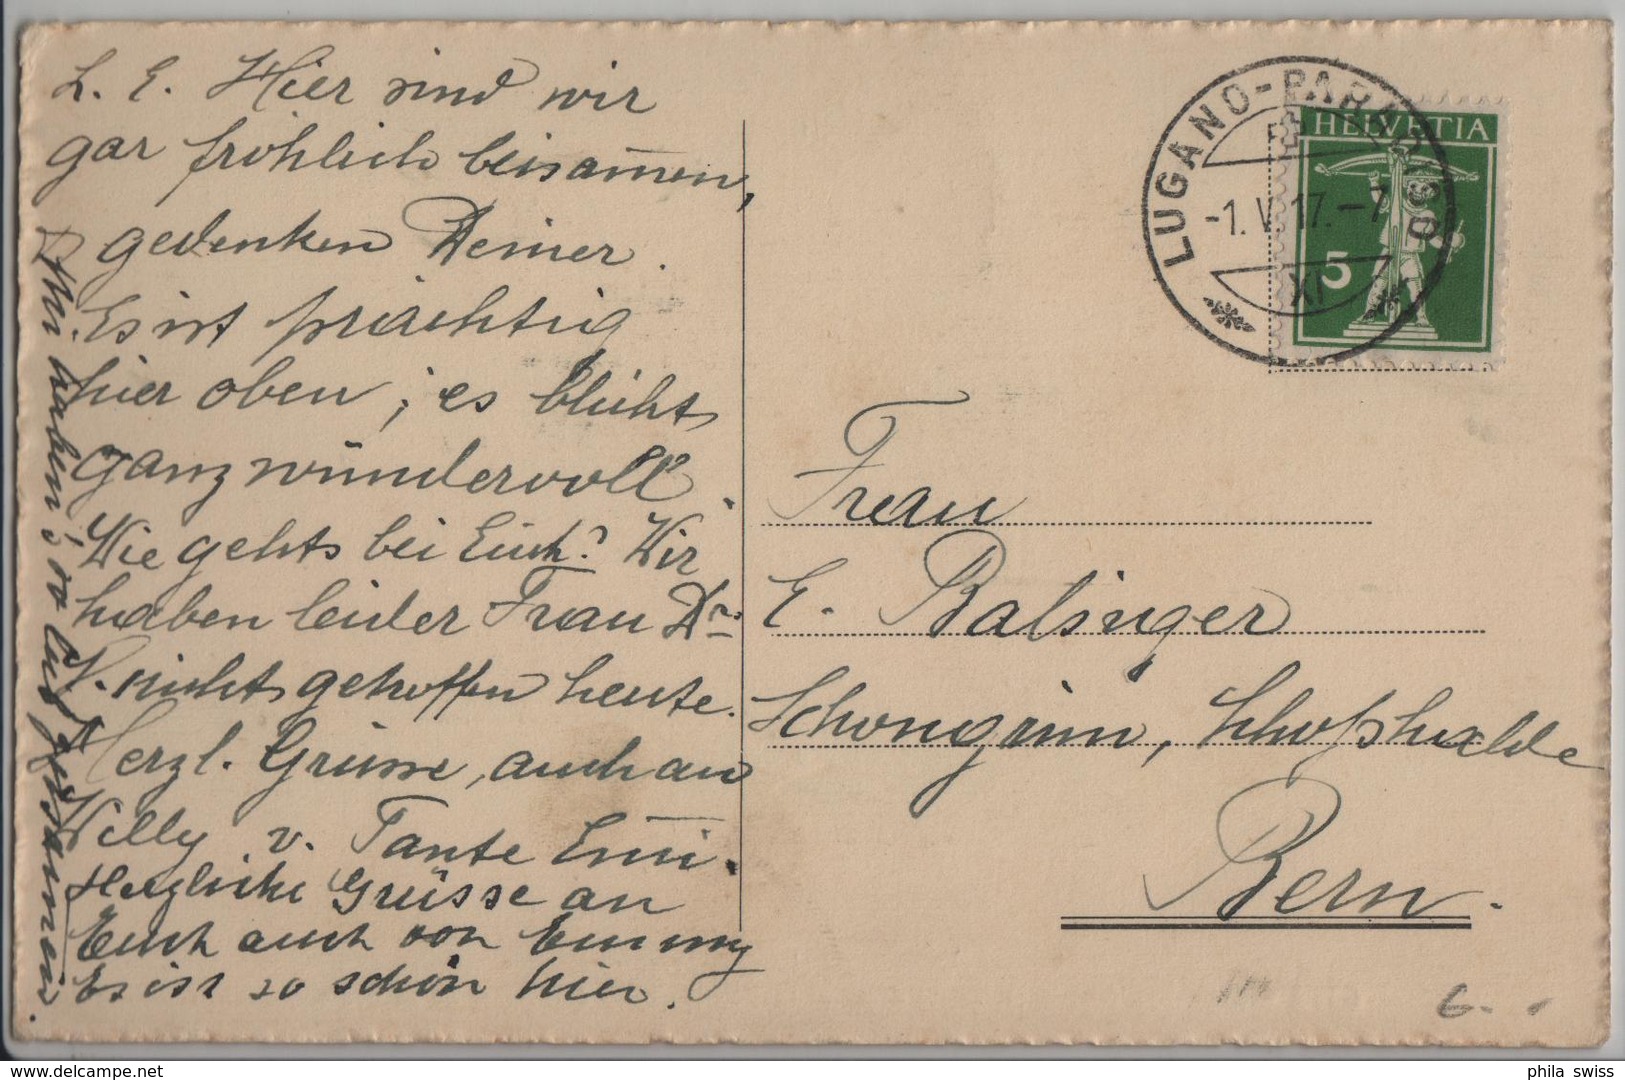 L. E. Hier sind wir
gar fröhlich beisam̅en,
gedenken Deiner.
Es ist prächtig
hier oben; es blüht
ganz wundervoll.
Wie gehts bei Euch? Wir
haben leider Frau Dr.
nicht getroffen heute.
Herzl. Grüsse, auch an
Willy v. Tante Emi.
Herzliche Grüsse an
Euch auch von Emmy
Es ist so schön hier.
Wir haben's so lustig zusammen.
LUGANO-PARADISO
-1.V.17.-7
XI
HELVETIA
5
Frau
E. Balsiger
Schongrün, Schoßhalde
Bern.
6.-
phila swiss
delcampe.net